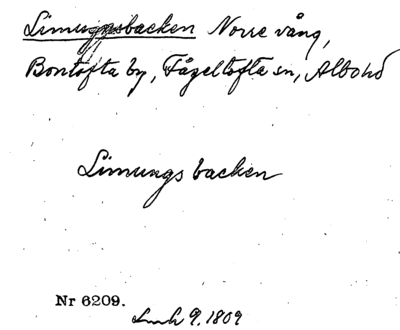 Limungsbacken Norre vång,
Bontofta by, Fågeltofta sn, Albo hd
Limungsbacken
Nr 6209.
9. 1809